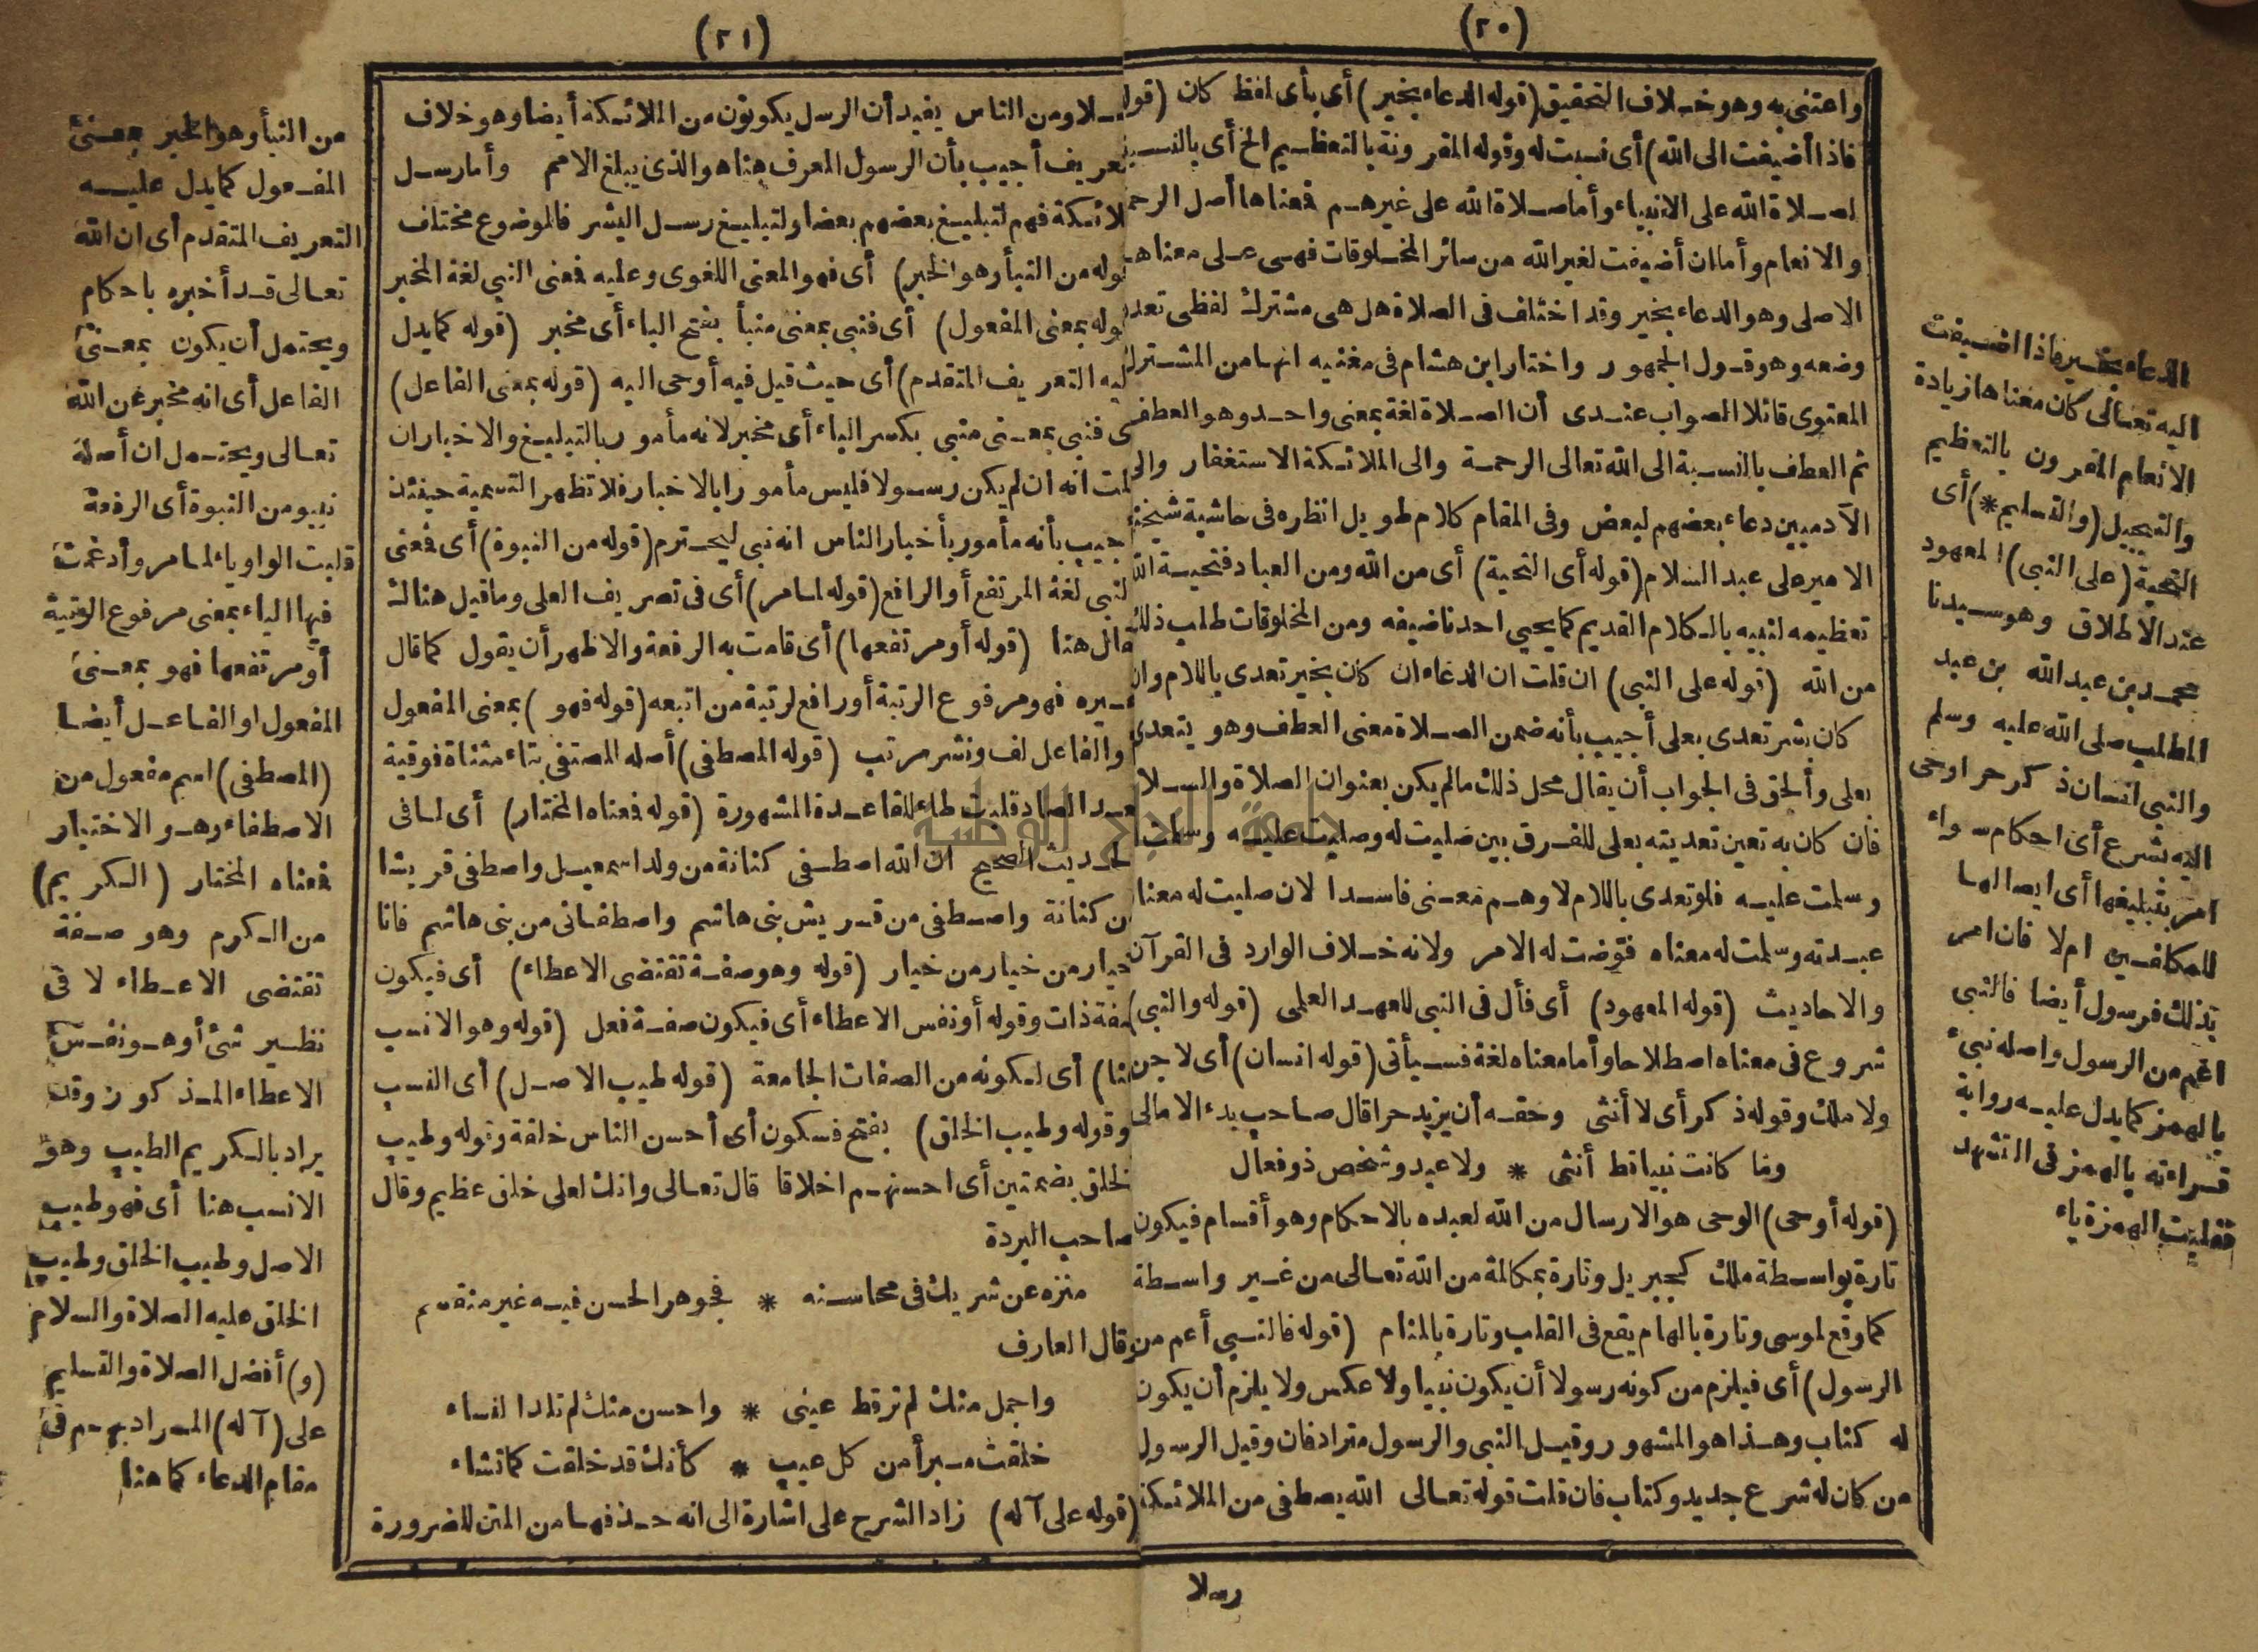 (٢٠)
واعتنى به وهو خلاف التحقيق (قوله الدعاء بخير) أى بأى لفظ كان (قوله
فاذا أضيفت الى الله) أى نسبت له وقوله المقرونة بالتعظيم الخ أى بالنسبة
لصلاة الله على الانبياء وأما صلاة الله على غيرهم فمعناها أصل الرحمة
والانعام وأما ان أضيفت لغير الله من سائر المخلوقات فهى على معناها
الاصلى وهو الدعاء بخير وقد اختلف فى الصلاة هل هى مشترك لفظى تعدد
وضعه وهو قول الجمهور واختار ابن هشام فى مغنيه انها من المشترك
المعنوى قائلا الصواب عندى أن الصلاة لغة بمعنى واحد وهو العطف
ثم العطف بالنسبة الى الله تعالى الرحمة والى الملائكة الاستغفار والى
الآدميين دعاء بعضهم لبعض وفى المقام كلام طويل انظره فى حاشية شيخنا
الامير على عبد السلام (قوله أى التحية) أى من الله ومن العباد فتحية الله
تعظيمه لنبيه بالكلام القديم كما يحيى احدنا ضيفه ومن المخلوقات طلب ذلك
من الله (قوله على النبى) ان قلت ان الدعاء ان كان بخير تعدى باللام وان
كان بشر تعدى بعلى أجيب بأنه ضمن الصلاة معنى العطف وهو يتعدى
بعلى وألحق فى الجواب أن يقال محل ذلك مالم يكن بعنوان الصلاة والسلام
فان كان به تعين تعديته بعلى للفرق بين صليت له وصليت عليه وسلمت له
وسلمت عليه فلو تعدى باللام لاوهم معنى فاسدا لان صليت له معناه
عبدته وسلمت له معناه فوّضت له الامر ولانه خلاف الوارد فى القرآن
والاحاديث (قوله المعهود) أى فأل فى النبى للعهد العلمى (قوله والنبى)
شروع فى معناه اصطلاحا وأما معناه لغة فسيأتى (قوله انسان) أى لا جن
ولا ملك وقوله ذكر أى لا أنثى وحقه أن يزيد حرا قال صاحب بدء الامالى
وما كانت نبيا قط أنثى * ولا عبد وشخص ذو فعال
(قوله أوحى) الوحى هو الارسال من الله لعبده بالاحكام وهو أقسام فيكون
تارة بواسطة ملك كجبريل وتارة بمكالمة من الله تعالى من غير واسطة
كما وقع لموسى وتارة بالهام يقع فى القلب وتارة بالمنام (قوله فالنبى أعم من
الرسول) أى فيلزم من كونه رسولا أن يكون نبيا ولا عكس ولا يلزم أن يكون
له كتاب وهذا هو المشهور وقيل النبى والرسول مترادفان وقيل الرسول
من كان له شرع جديد وكتاب فان قلت قوله تعالى الله يصطفى من الملائكة
رسلا
الدعاء بخير فاذا اضيفت
اليه تعالى كان معناها زيادة
الانعام المقرون بالتعظيم
والتبجيل (والتسليم *) أى
التحية (على النبى) المعهود
عند الاطلاق وهو سيدنا
محمد بن عبد الله بن عبد
المطلب صلى الله عليه وسلم
والنبى انسان ذكر حر اوحى
اليه بشرع أى احكام سواء
امر بتبليغها أى ايصالها
للمكلفين ام لا فان امر
بذلك فرسول أيضا فالنبى
اعم من الرسول واصله نبىء
بالهمز كما يدل عليه رواية
قراءته بالهمز فى التشهد
فقلبت الهمزة ياء
(٢١)
رسلا ومن الناس يفيد أن الرسل يكونون من الملائكة أيضا وهو خلاف
التعريف أجيب بأن الرسول المعرف هنا هو الذى يبلغ الامم وأما رسل
الملائكة فهم لتبليغ بعضهم بعضا ولتبليغ رسل البشر فالموضوع مختلف
(قوله من النبأ وهو الخبر) أى فهو المعنى اللغوى وعليه فمعنى النبى لغة المخبر
(قوله بمعنى المفعول) أى فنبى بمعنى منبأ بفتح الباء أى مخبر (قوله كما يدل
عليه التعريف المتقدم) أى حيث قيل فيه أوحى اليه (قوله بمعنى الفاعل)
أى فنبى بمعنى منبى بكسر الباء أى مخبر لانه مأمور بالتبليغ والاخبار ان
قلت انه ان لم يكن رسولا فليس مأمورا بالاخبار فلا تظهر التسمية حينئذ
أجيب بأنه مأمور بأخبار الناس انه نبى ليحترم (قوله من النبوة) أى فمعنى
النبى لغة المرتفع أو الرافع (قوله لما مر) أى فى تصريف العلى وما قيل هناك
يقال هنا (قوله أو مرتفعها) أى قامت به الرفعة والاظهر أن يقول كما قال
غيره فهو مرفوع الرتبة أو رافع لرتبة من اتبعه (قوله فهو) بمعنى المفعول
والفاعل لف ونشر مرتب (قوله المصطفى) أصله المصتفى بتاء مثناة فوقية
بعد الصاد قلبت طاء للقاعدة المشهورة (قوله فمعناه المختار) أى لما فى
الحديث الصحيح ان الله اصطفى كنانة من ولد اسمعيل واصطفى قريشا
من كنانة واصطفى من قريش بنى هاشم واصطفانى من بنى هاشم فانا
خيار من خيار من خيار (قوله وهو صفة تقتضى الاعطاء) أى فيكون
صفة ذات وقوله أو نفس الاعطاء أى فيكون صفة فعل (قوله وهو الانسب
هنا) أى لكونه من الصفات الجامعة (قوله طيب الاصل) أى النسب
وقوله وطيب الخلق) بفتح فسكون أى أحسن الناس خلقة وقوله وطيب
الخلق بضمتين أى احسنهم اخلاقا قال تعالى وانك لعلى خلق عظيم وقال
صاحب البردة
منزه عن شريك فى محاسنه * فجوهر الحسن فيه غير منقسم
وقال العارف
واجمل منك لم ترقط عينى * واحسن منك لم تلد النساء
خلقت مبرأ من كل عيب * كأنك قد خلقت كما تشاء
(قوله على آله) زاد الشرح على اشارة الى انه حذفها من المتن للضرورة
من النبأ وهو الخبر بمعنى
المفعول كما يدل عليه
التعريف المتقدم أى ان الله
تعالى قد أخبره باحكام
ويحتمل أن يكون بمعنى
الفاعل أى انه مخبر عن الله
تعالى ويحتمل ان أصله
نبيو من النبوة أى الرفعة
قلبت الواو ياء لما مر وأدغمت
فيها الياء بمعنى مرفوع الرتبة
أو مرتفعها فهو بمعنى
المفعول او الفاعل أيضا
(المصطفى) اسم مفعول من
الاصطفاء وهو الاختيار
فمعناه المختار (الكريم)
من الكرم وهو صفة
تقتضى الاعطاء لا فى
نظير شئ أو هو نفس
الاعطاء المذكور وقد
يراد بالكريم الطيب وهو
الانسب هنا أى فهو طيب
الاصل وطيب الخلق وطيب
الخلق عليه الصلاة والسلام
(و) أفضل الصلاة والتسليم
على (آله) المراد بهم فى
مقام الدعاء كما هنا
جامعة النجاح الوطنية